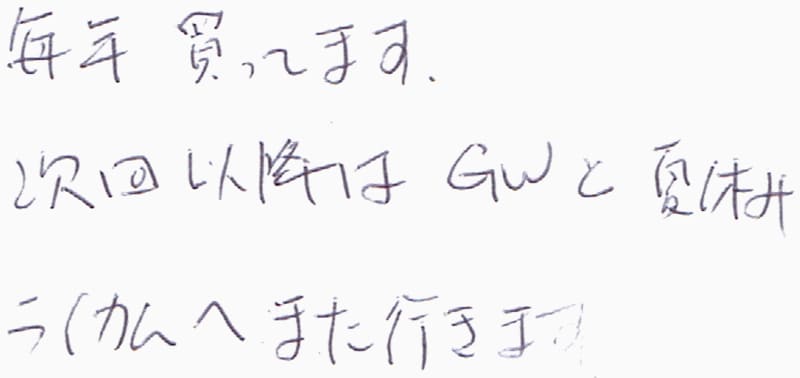 毎年 買ってます.
次回以降は GWと夏休み
ライカムへまた行きます